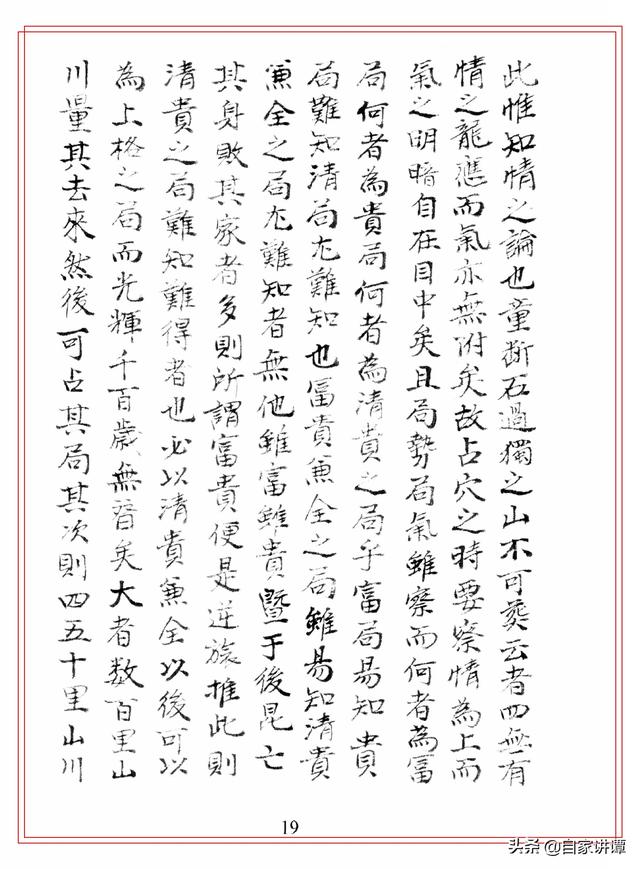 此惟知情之論也童斷石過獨之山不可葬云者四無有
情之龍應而氣亦無附矣故占穴之時要察情為上而
氣之明暗自在目中矣且局勢局氣雖察而何者為富
局何者為貴局何者為清貴之局乎富局易知貴
局難知清局尤難知也富貴兼全之局雖易知清貴
兼全之局尤難知者無他雖富雖貴暨于後昆亡
其身敗其家者多則所謂富貴便是逆旅推此則
清貴之局難知難得者也必以清貴兼全以後可以
為上格之局而光輝千百歲無替矣大者数百里山
川量其去來然後可占其局其次則四五十里山川
19
头条 @自家讲谭